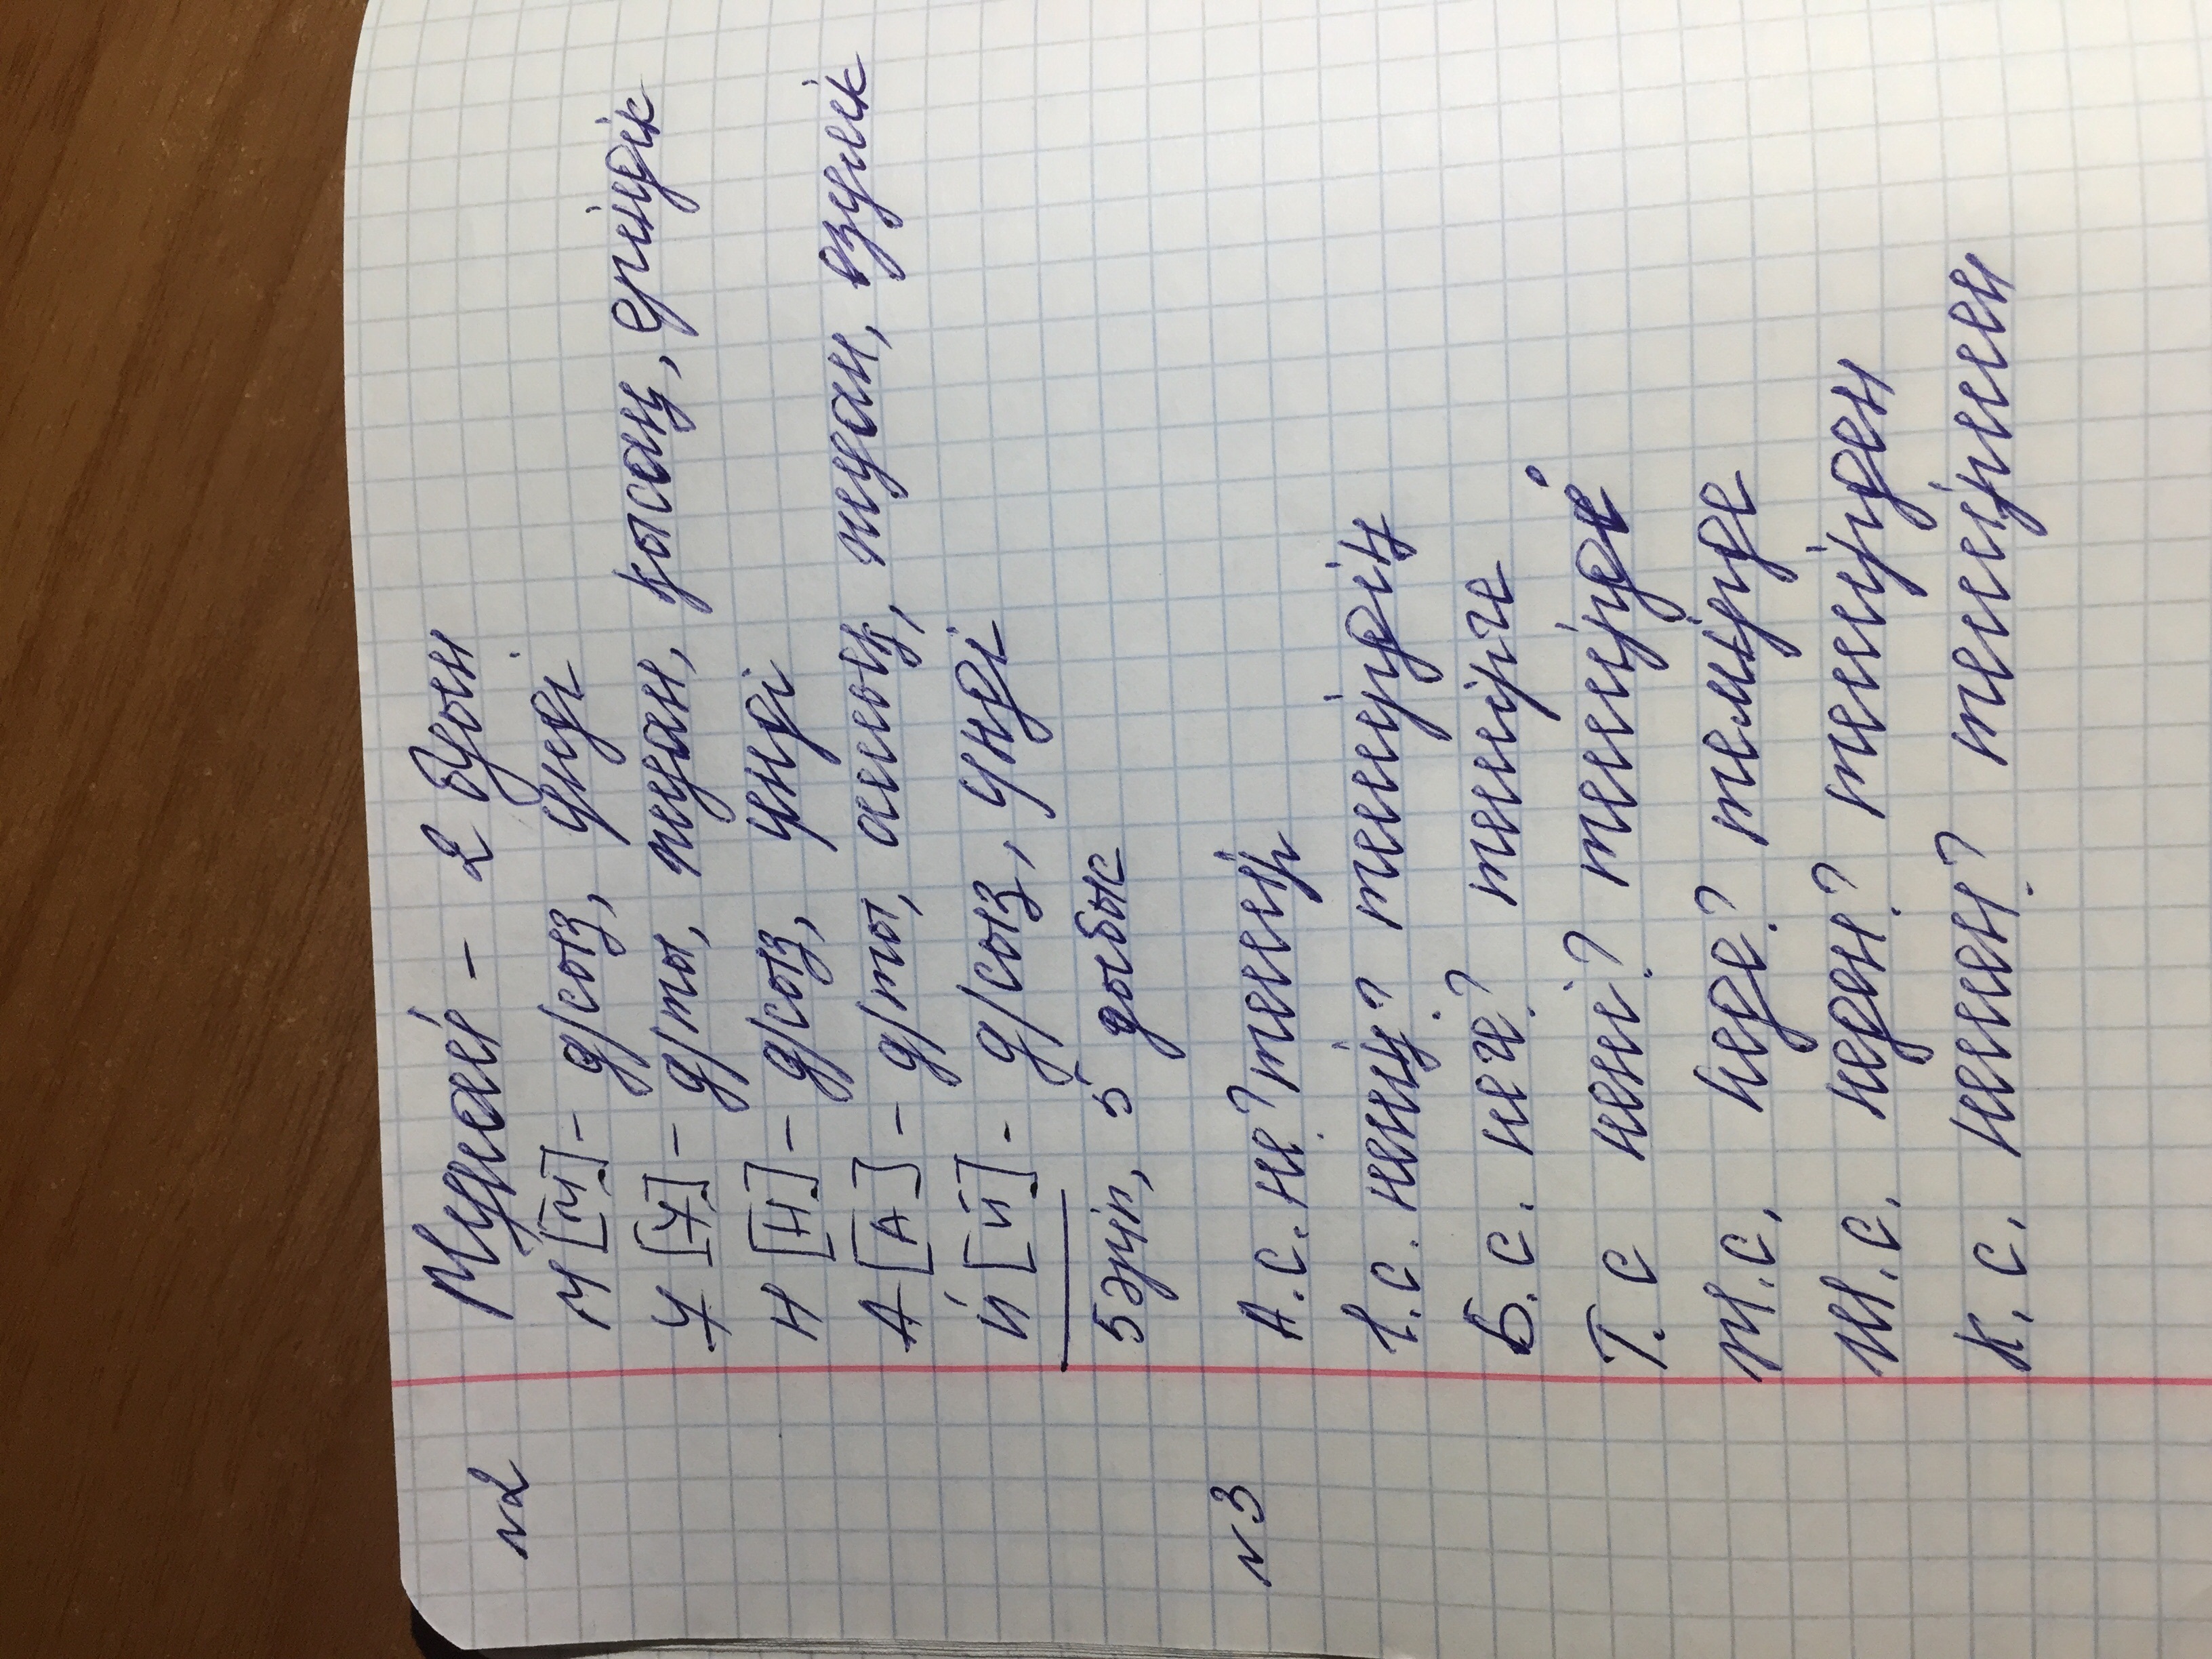 №2 Мұнай - 2 буын
М [М] - д/сыз, үнді
Ұ [Ұ] - д/ты, жуан, қысаң, еріндік
Н [Н] - д/сыз, үнді
А [А] - д/ты, ашық, жуан, езулік
Й [Й] - д/сыз, үнді
5 әріп, 5 дыбыс
№3 А.с. не? темір
І.с. ненің? темірдің
Б.с. неге? темірге
Т.с нені? темірді
Ж.с. неде? темірде
Ш.с. неден? темірден
К.с. немен? темірмен